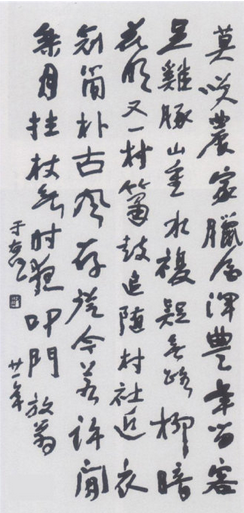 莫咲農家臘酒渾豐年留客
足雞豚山重水複疑無路柳暗
花明又一村簫鼓追随村社近衣
冠簡朴古風存從今若許閒
乘月拄杖無時夜叩門放翁
廿一年
于右任